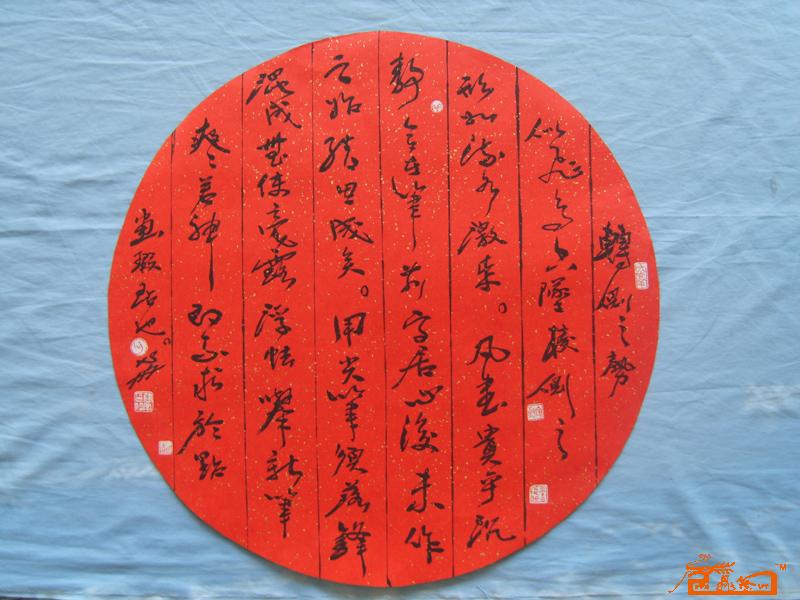 轉側之勢
似飛鳥空墜棱側之
形如流水激來。凡書貴乎沉
靜令意在筆前字居心後未作
之始結思成矣。用尖筆須落鋒
混成無使毫露浮怯舉新筆
爽〻若神即不求於點
畫瑕玷也。